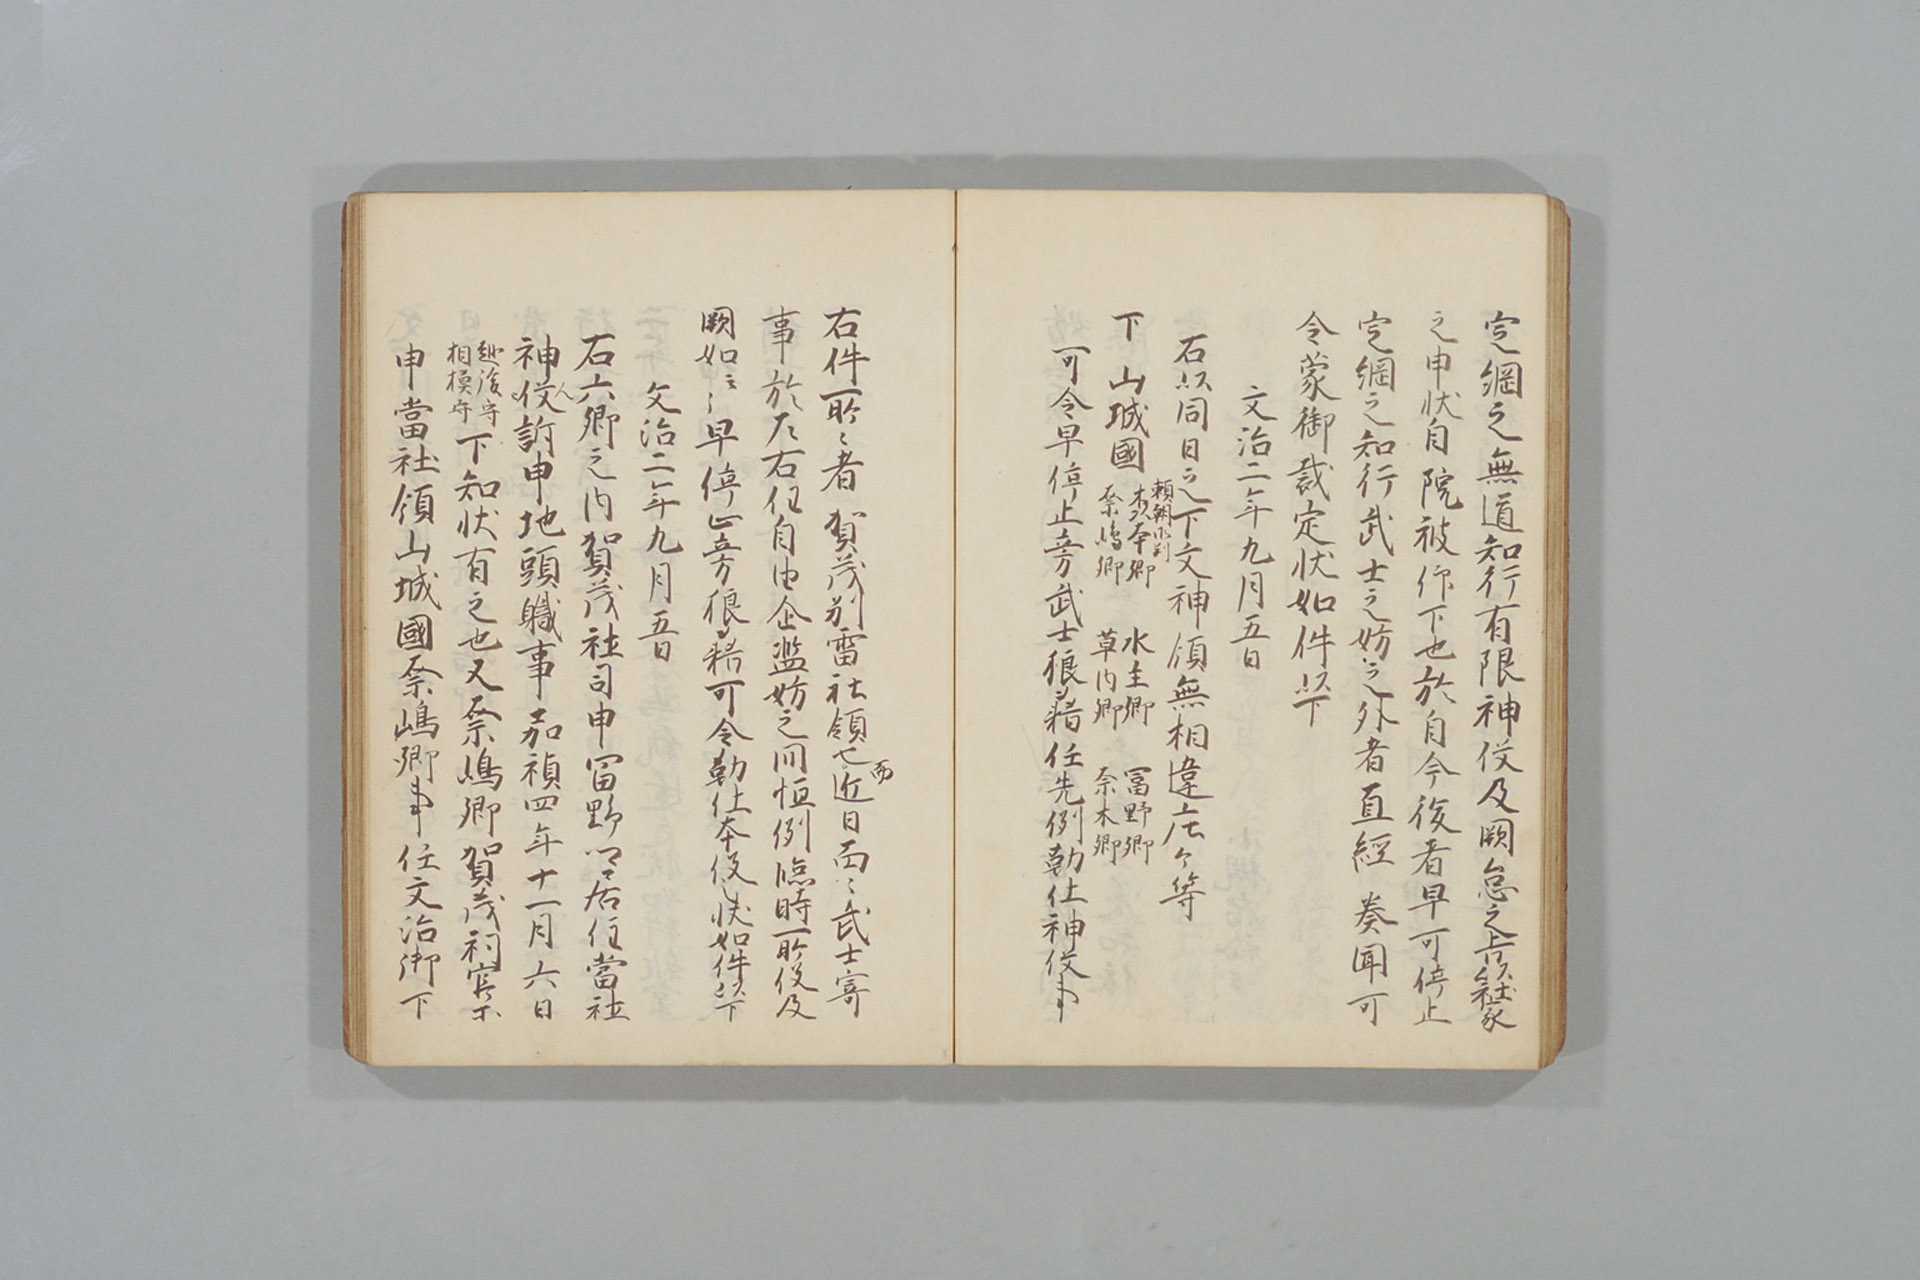 定綱之無道知行有限神役及闕怠之旨社家
之申状自 院被仰下也於自今後者早可停止
定綱之知行武士之妨之外者直經 奏聞可
令蒙御裁定状如件以下
文治二年九月五日
右以同日之下文神領無相違庄々等
頼朝御判
下 山城國 水主卿 冨野卿
奈嶋卿 草内卿 奈木卿
可令早停止旁武士狼藉任先例勤仕神役事
右件所々者賀茂別雷社領也近日面々武士寄
而
事於左右任自由企濫妨之間恒例臨時所役及
闕如云々早停止旁狼藉可令勤仕本役状如件以下
文治二年九月五日
右六卿之内賀茂社司申冨野 居住當社
神人
役訴申地頭職事嘉禎四年十一月六日
越後守
相模守
下知状有之也又奈嶋卿賀茂祠官等
申當社領山城國奈嶋卿事任文治御下